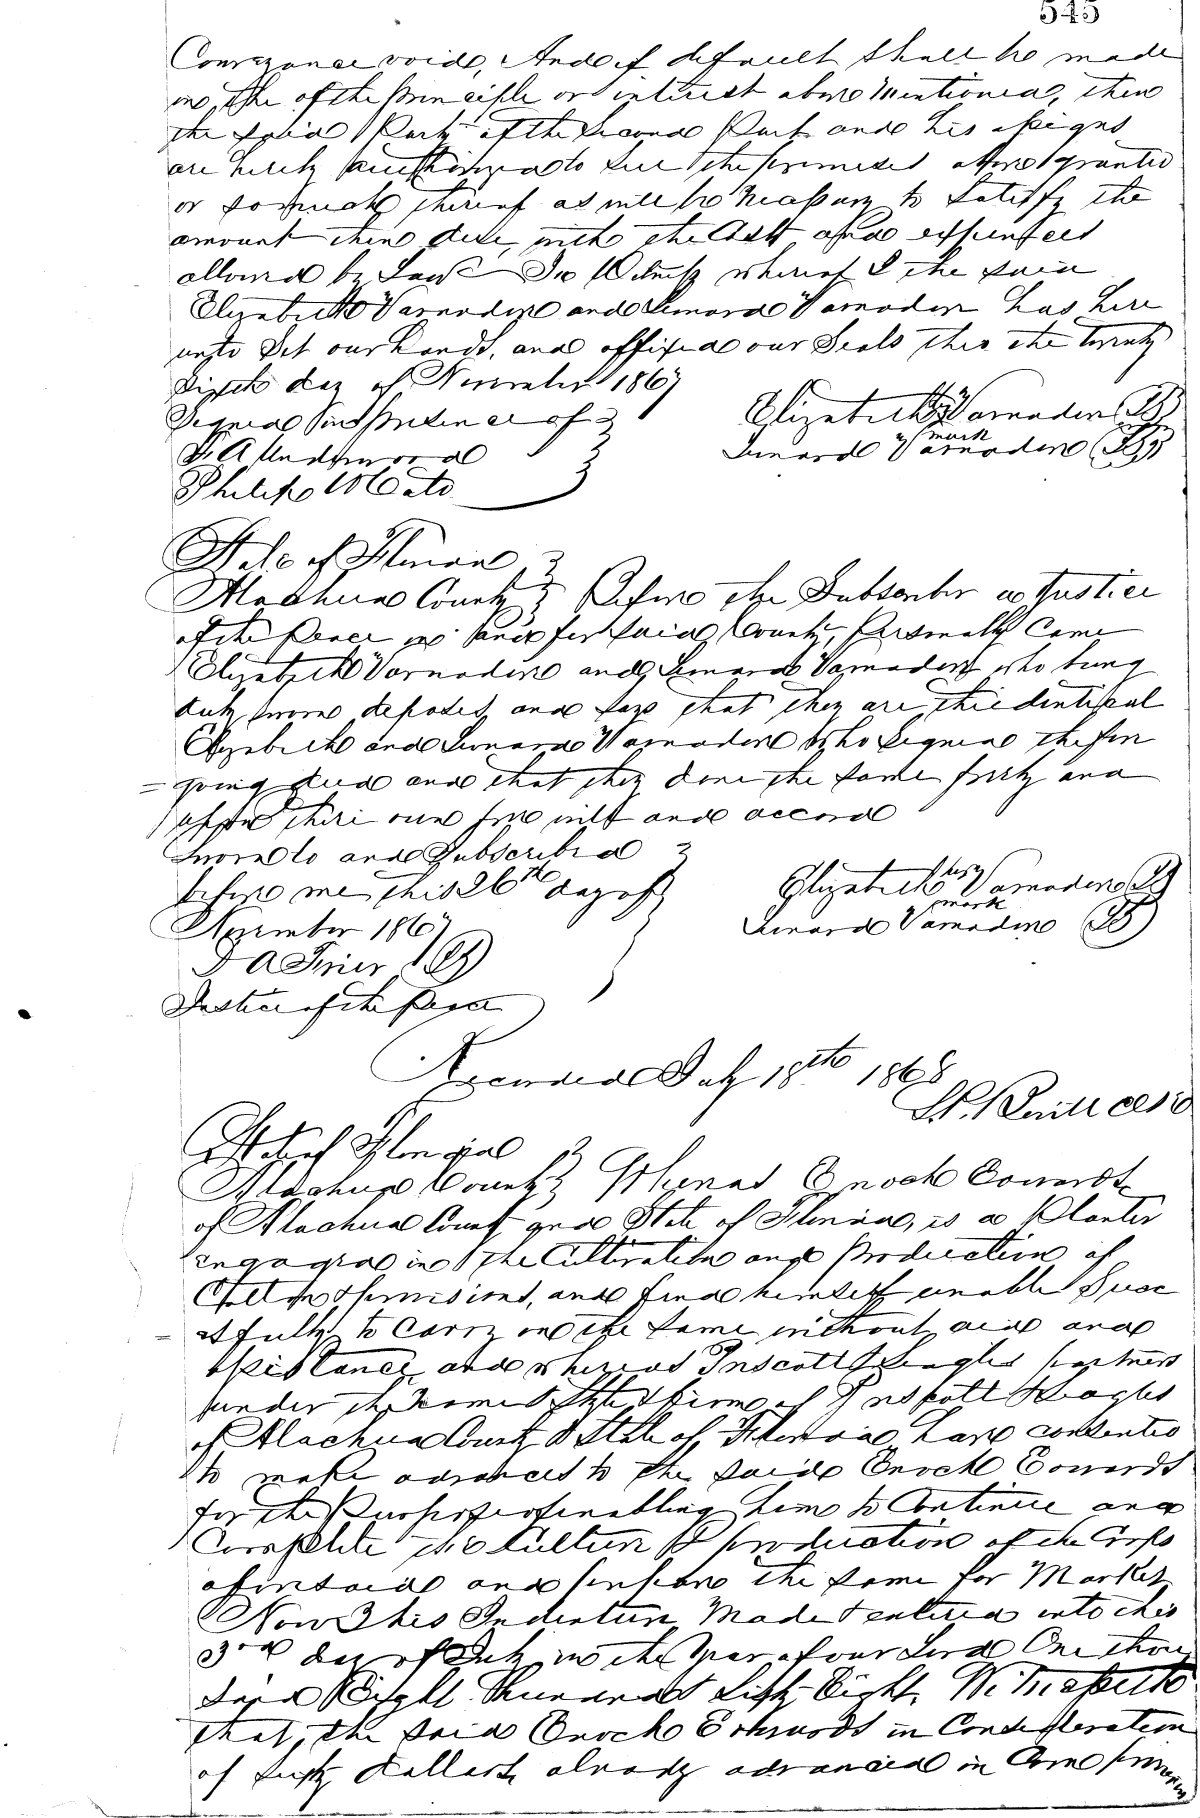 545
Conveyance void, And if default shall be made
in the of the principle or interest above mentioned, then
the said Party of the Second Part and his assigns
are hereby authorized to sell the premises above granted
or so much thereof as will be necessary to satisfy the
amount then due, with the Cost and expenses
allowed by Law In Witness whereof I the said
Elizabeth Varnadore and Lenard Varnadore has here
unto Set our hands, and affixed our Seals this the twenty
sixth day of November 1867
Signed in presence of
Elizabeth her Varnadore
mark
F. A Underwood
Lenard Varnadore
Philip W Cato
State of Florida
Alachua County Before the Subscriber a Justice
of the Peace in and for said County, Personally Came
Elizabeth Varnadore and Lenard Varnadore who being
duly sworn deposes and says that they are the identical
Elizabeth and Lenard Varnadore Who signed the fore
= going deed and that they done the same freely and
upon their own free will and accord
Sworn to and Subscribed
before me this 26th day of
Elizabeth her Varnadore
mark
November 1867
Lenard Varnadore
Justice of the Peace
Recorded July 18th 1868
State of Florida
Alachua County Whereas Enoch Edwards
of Alachua County and State of Florida, is a Planter
engaged in the Cultivation and production of
Cotton & provisions, and find himself unable Succ
= esfully to carry on the same without aid and
assistance, and whereas Prescott & Beagles partners
under the name Style & firm of Prescott & Beagles
of Alachua County & State of Florida, have consented
to make advances to the said Enoch Edwards
for the Purpose of enabling him to Continue and
Complete the Culture & production of the Crops
aforesaid and prepare the same for Market
Now This Indenture Made & entered into this
3rd day of July in the Year of our Lord One thou
sand Eight Hundred & Sixty Eight, Witnesseth
that, the said Enoch Edwards in Consideration
of sixty dollars already advanced in Corn